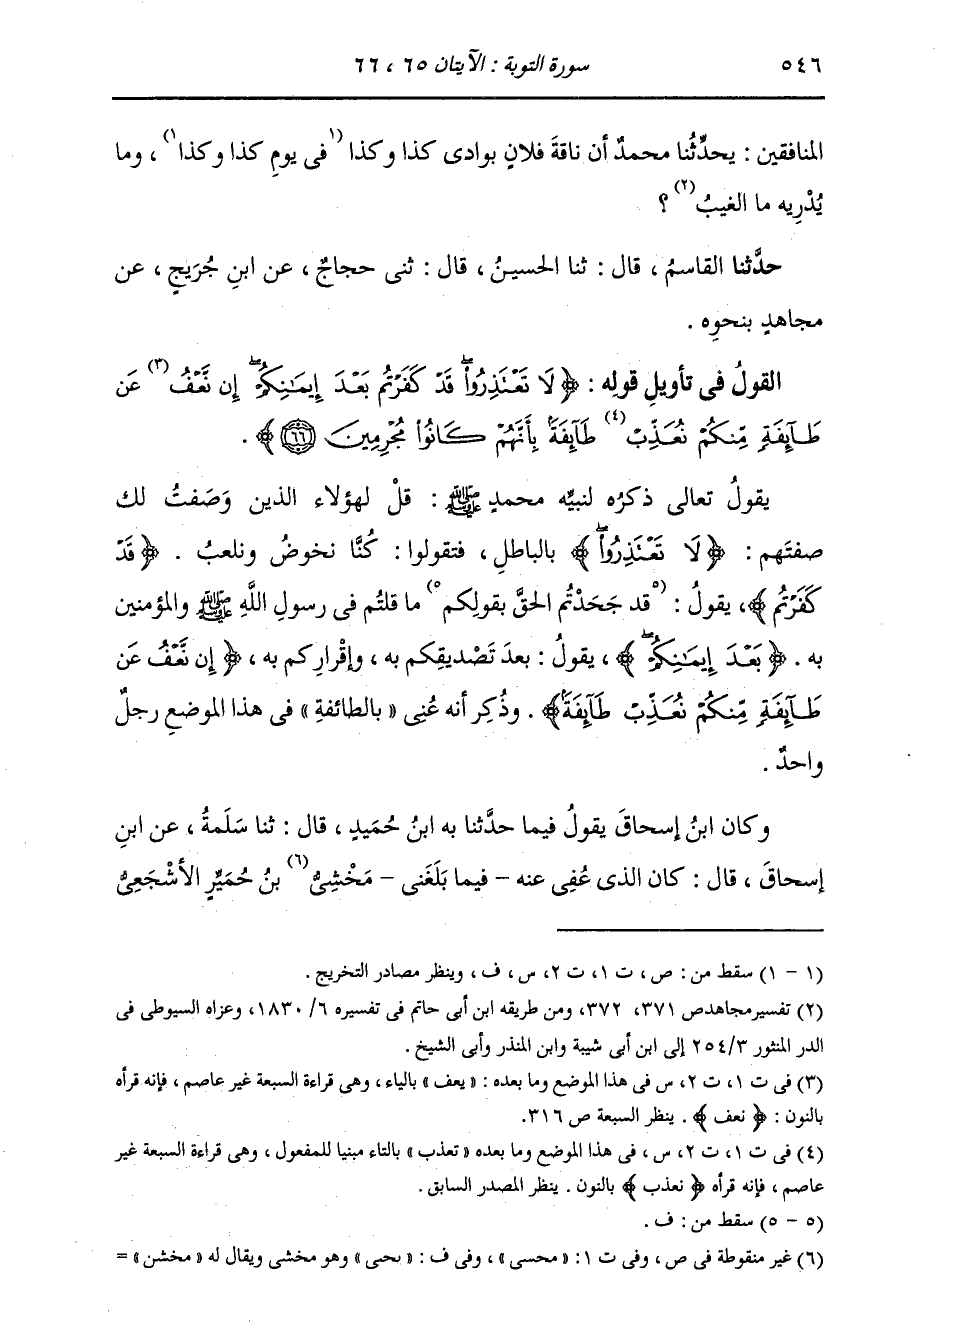 ٥٤٦ سورة التوبة : الآيتان ٦٥ ، ٦٦
المنافقين : يحدِّثُنا محمدٌ أن ناقةَ فلانٍ بوادى كذا وكذا (١فى يومِ كذا وكذا١) ، وما
يُدْرِيه ما الغيبُ(٢) ؟
حدَّثنا القاسمُ ، قال : ثنا الحسينُ ، قال : ثنى حجاجٌ ، عن ابنِ جُرَيجٍ ، عن
مجاهدٍ بنحوِه .
القولُ فى تأويلِ قولِه : ﴿ لَا تَعْتَذِرُوا۟ ۖ قَدْ كَفَرْتُم بَعْدَ إِيمَـٰنِكُمْ ۚ إِن نَّعْفُ(٣) عَن
طَآئِفَةٍ مِّنكُمْ نُعَذِّبْ(٤) طَآئِفَةًۢ بِأَنَّهُمْ كَانُوا۟ مُجْرِمِينَ ۝٦٦ ﴾ .
يقولُ تعالى ذكرُه لنبيِّه محمدٍ ﷺ : قلْ لهؤلاء الذين وَصَفتُ لك
صفتَهم : ﴿ لَا تَعْتَذِرُوا۟ ۖ ﴾ بالباطلِ ، فتقولوا : كُنَّا نخوضُ ونلعبُ . ﴿ قَدْ
كَفَرْتُم ﴾، يقولُ : (٥قد جَحَدْتُم الحقَّ بقولِكم٥) ما قلتُم فى رسولِ اللَّهِ ﷺ والمؤمنين
به . ﴿ بَعْدَ إِيمَـٰنِكُمْ ۚ ﴾ ، يقولُ : بعدَ تَصْديقِكم به ، وإقْرارِكم به ، ﴿ إِن نَّعْفُ عَن
طَآئِفَةٍ مِّنكُمْ نُعَذِّبْ طَآئِفَةًۢ ﴾ . وذُكِر أنه عُنِى « بالطائفةِ » فى هذا الموضعِ رجلٌ
واحدٌ .
وكان ابنُ إسحاقَ يقولُ فيما حدَّثنا به ابنُ حُمَيدٍ ، قال : ثنا سَلَمةُ ، عن ابنِ
إسحاقَ ، قال : كان الذى عُفِى عنه – فيما بَلَغَنى – مَخْشِىُّ(٦) بنُ حُمَيِّرٍ الأَشْجَعِىُّ
(١ – ١) سقط من : ص ، ت ١، ت ٢، س ، ف ، وينظر مصادر التخريج .
(٢) تفسير مجاهد ص ٣٧١، ٣٧٢، ومن طريقه ابن أبى حاتم فى تفسيره ٦/ ١٨٣٠، وعزاه السيوطى فى
الدر المنثور ٣/ ٢٥٤ إلى ابن أبى شيبة وابن المنذر وأبى الشيخ .
(٣) فى ت ١، ت ٢، س فى هذا الموضع وما بعده : « يعف » بالياء ، وهى قراءة السبعة غير عاصم ، فإنه قرأه
بالنون : ﴿ نعف ﴾ . ينظر السبعة ص ٣١٦.
(٤) فى ت ١، ت ٢، س ، فى هذا الموضع وما بعده « تعذب » بالتاء مبنيا للمفعول ، وهى قراءة السبعة غير
عاصم ، فإنه قرأه ﴿ نعذب ﴾ بالنون . ينظر المصدر السابق .
(٥ – ٥) سقط من : ف .
(٦) غير منقوطة فى ص ، وفى ت ١: « محسى » ، وفى ف : « يحيى » وهو مخشى ويقال له « مخشن » =